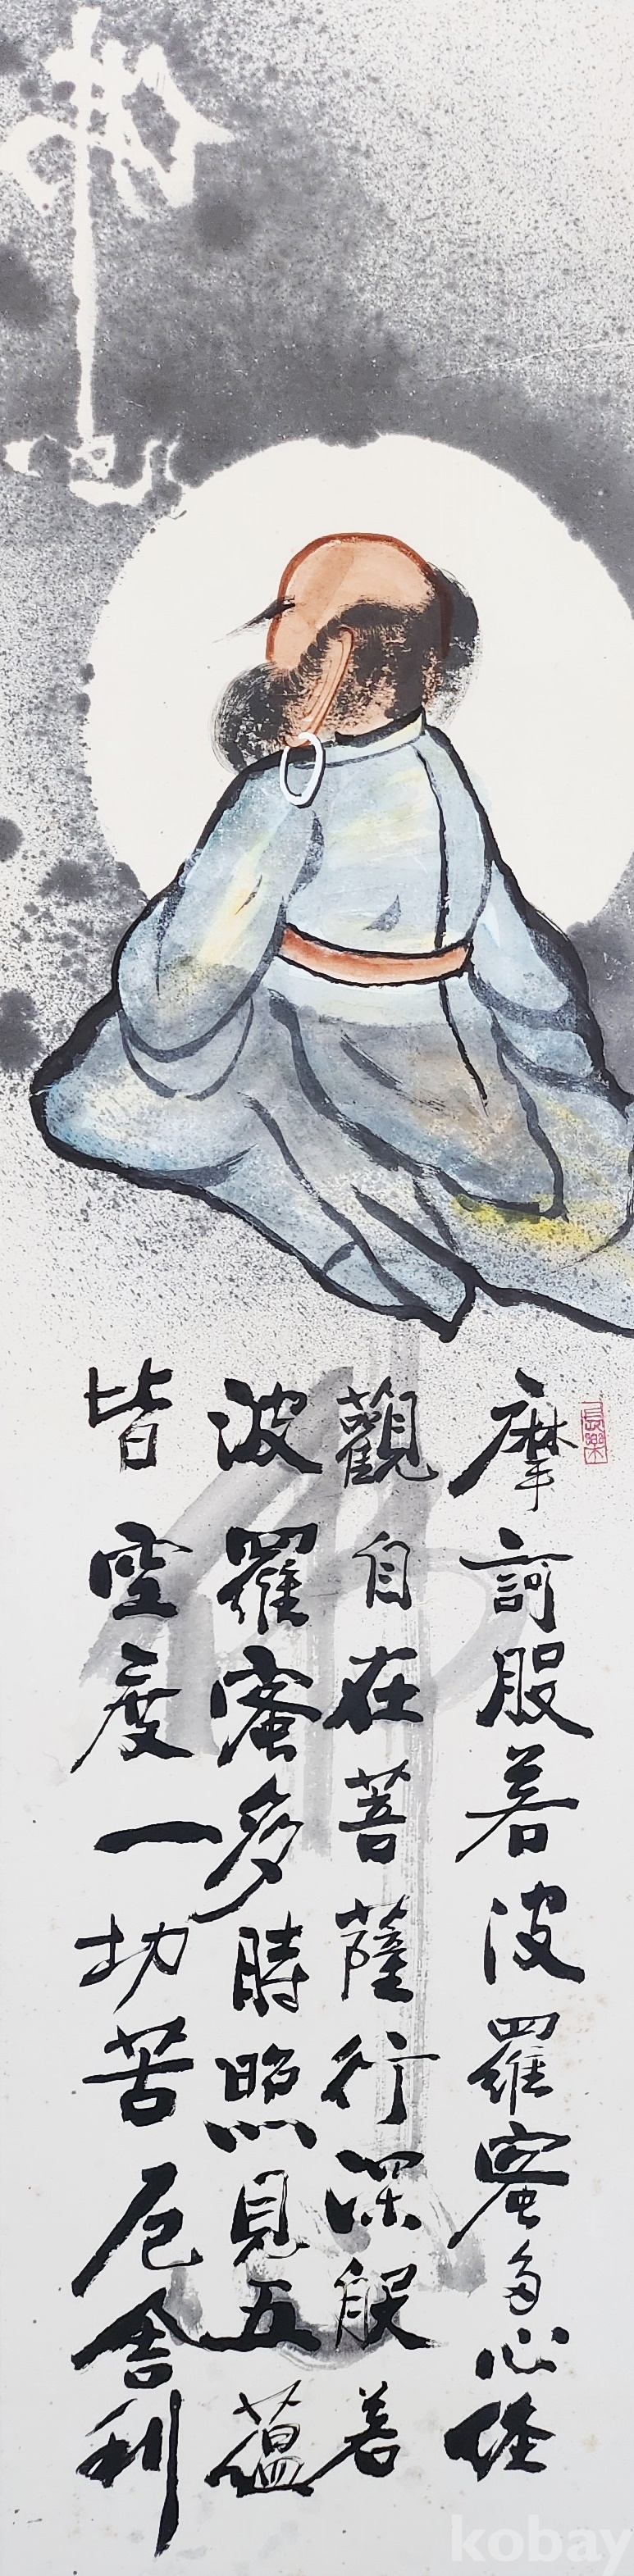 摩訶般若波羅蜜多心経
觀自在菩薩行深般若
波羅蜜多時照見五蘊
皆空度一切苦厄舎利
長樂
佛
kobay